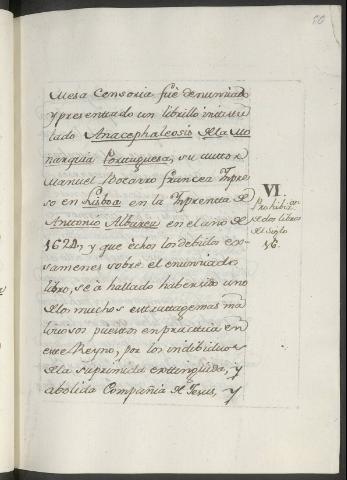 20
Mesa Censoria fuè denunciado
y presentado un librillo intitu
lado Anacephaleosis de la Mo
narquia Portuguesa, su autor
Manuel Bocarro Francez Impre
so en Lisboa en la Imprenta de
Antonio Albarez en el año de
1624, y que echos los debidos ex-
samenes sobre el enunciado
libro, se à hallado haber sido uno
de los muchos estrattagemas ma
liciosos puestos en practica en
este Reyno, por los indibiduos
de la suprimida extinguida, y
abolida Compañia de Jesus, y
VI.
Prohibi.on
de dos libros
del siglo
16.